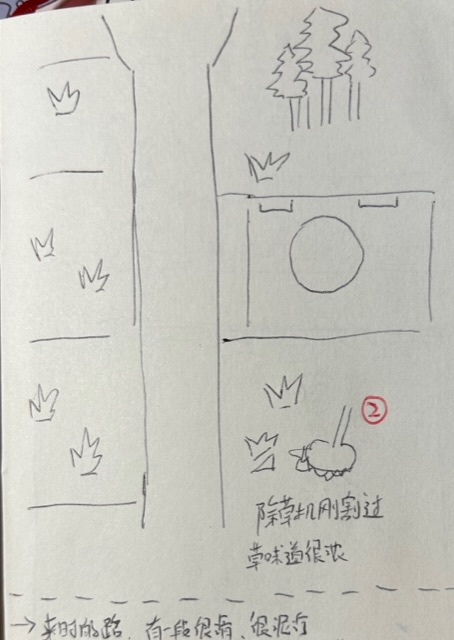 ②
除草机刚割过
草味道很浓
→ 来时的路，有一段很窄、很泥泞